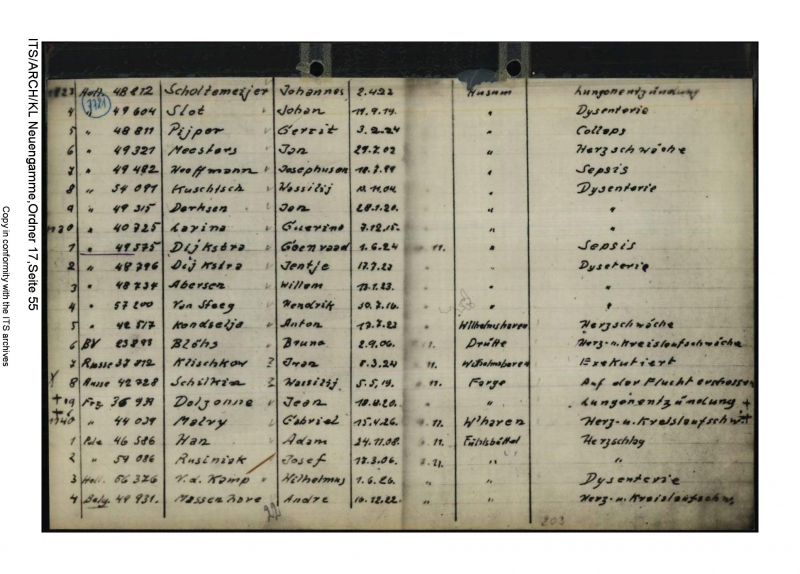 ITS/ARCH/KL Neuengamme,Ordner 17,Seite 55
Copy in conformity with the ITS archives
1823 Holl. 48812 Scholtemeijer Johannes 2.4.22 Husum Lungenentzündung
7721
4 " 49604 Slot Johan 11.9.19. " Dysenterie
5 " 48811 Pijper Gerrit 3.2.24 " Collaps
6 " 49321 Meesters Jan 29.7.02 " Herzschwäche
7 " 49492 Hoeffmann Josephus 18.7.99 " Sepsis
8 " 54091 Kuschtsch Wassilij 11.11.04. " Dysenterie
9 " 49315 Derksen Jan 28.1.20. " "
1830 " 40725 Lavina Guerino 7.12.15. " "
1 " 49575 Dijkstra Coenraad 1.6.24 11. " Sepsis
2 " 48796 Dijkstra Jentje 17.7.23 " " Dyseterie
3 " 48734 Abersen Willem 13.1.23. " " "
4 " 57200 Von Steeg Hendrik 30.7.16. " " "
5 " 42517 Anton 17.7.23 " Wilhelmshaven Herzschwäche
6 BV 23893 Blöhs Bruno 2.9.06. 11. Drütte Herz-u.Kreislaufschwäche
7 Russe 37812 Klischkow Iwan 8.3.24 11. Wilhelmshaven Exekutiert
8 Russe 42728 Schilkin Wassilij 5.5.19. 11. Farge Auf der Flucht erschossen
+ 9 Frz 36939 Jean 18.4.20. " " Lungenentzündung +
+ 1840 " 44039 Malry Gabriel 15.4.26. 11. W'haven Herz-u.Kreislaufschw. +
1 Pole 46586 Han Adam 24.11.08. 11. Fühlsbüttel Herzschlag
2 " 54086 Rusiniak Josef 17.3.06. 11. " "
3 Holl. 56326 V.d. Kamp Wilhelmus 1.6.26. " " Dysenterie
4 Belg. 49931. Massenhove Andre 10.12.22. " " Herz-u.Kreislaufschw.
203